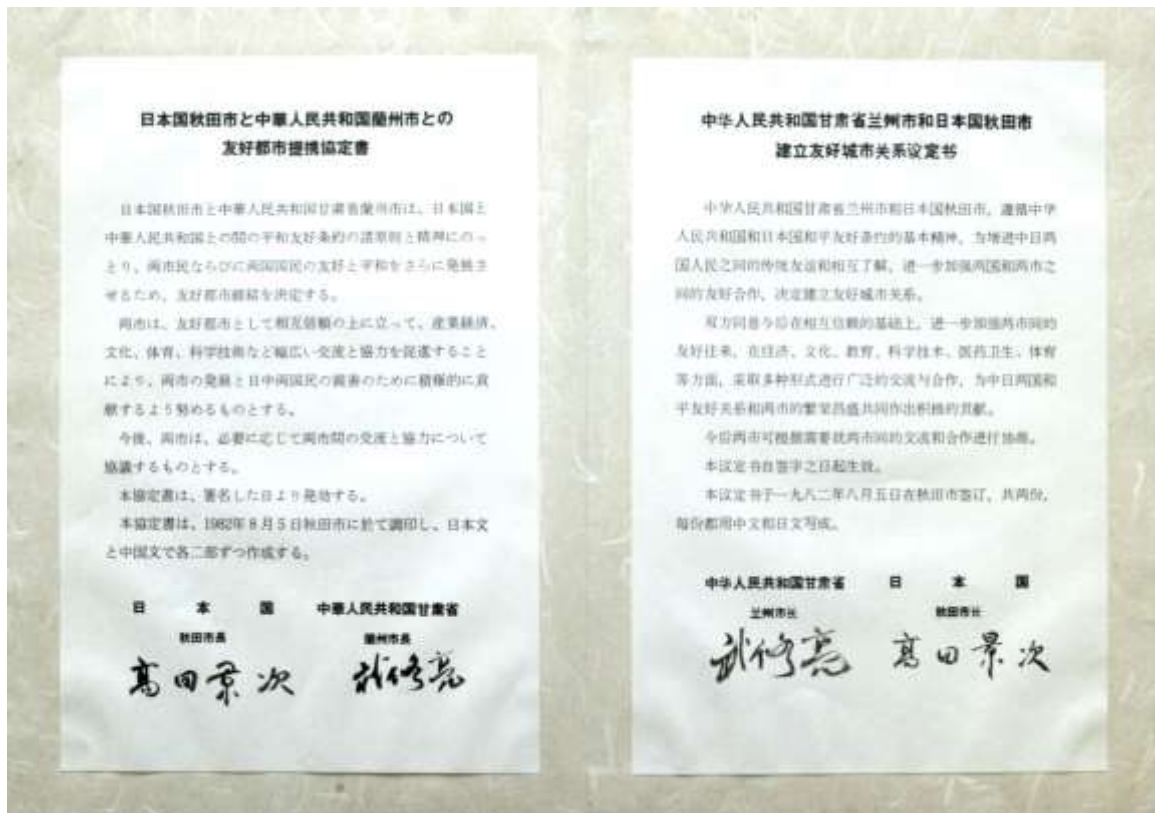 日本国秋田市と中華人民共和国蘭州市との
友好都市提携協定書
日本国秋田市と中華人民共和国甘粛省蘭州市は、日本国と
中華人民共和国との間の平和友好条約の諸原則と精神にのっ
とり、両市民ならびに両国国民の友好と平和をさらに発展さ
せるため、友好都市締結を決定する。
両市は、友好都市として相互信頼の上に立って、産業経済、
文化、体育、科学技術など幅広い交流と協力を促進すること
により、両市の発展と日中両国民の親善のために積極的に貢
献するよう努めるものとする。
今後、両市は、必要に応じて両市間の交流と協力について
協議するものとする。
本協定書は、署名した日より発効する。
本協定書は、1982年8月5日秋田市に於て調印し、日本文
と中国文で各二部ずつ作成する。
日本国 中華人民共和国甘粛省
秋田市長 蘭州市長
高田景次 武修亮
中华人民共和国甘肃省兰州市和日本国秋田市
建立友好城市关系议定书
中华人民共和国甘肃省兰州市和日本国秋田市，遵循中华
人民共和国和日本国和平友好条约的基本精神，为增进中日两
国人民之间的传统友谊和相互了解，进一步加强两国和两市之
间的友好合作，决定建立友好城市关系。
双方同意今后在相互信赖的基础上，进一步加强两市间的
友好往来，在经济、文化、教育、科学技术、医药卫生、体育
等方面，采取多种形式进行广泛的交流与合作，为中日两国和
平友好关系和两市的繁荣昌盛共同作出积极的贡献。
今后两市可根据需要就两市间的交流和合作进行协商。
本议定书自签字之日起生效。
本议定书于一九八二年八月五日在秋田市签订，共两份，
每份都用中文和日文写成。
中华人民共和国甘肃省 日本国
兰州市长 秋田市长
武修亮 高田景次